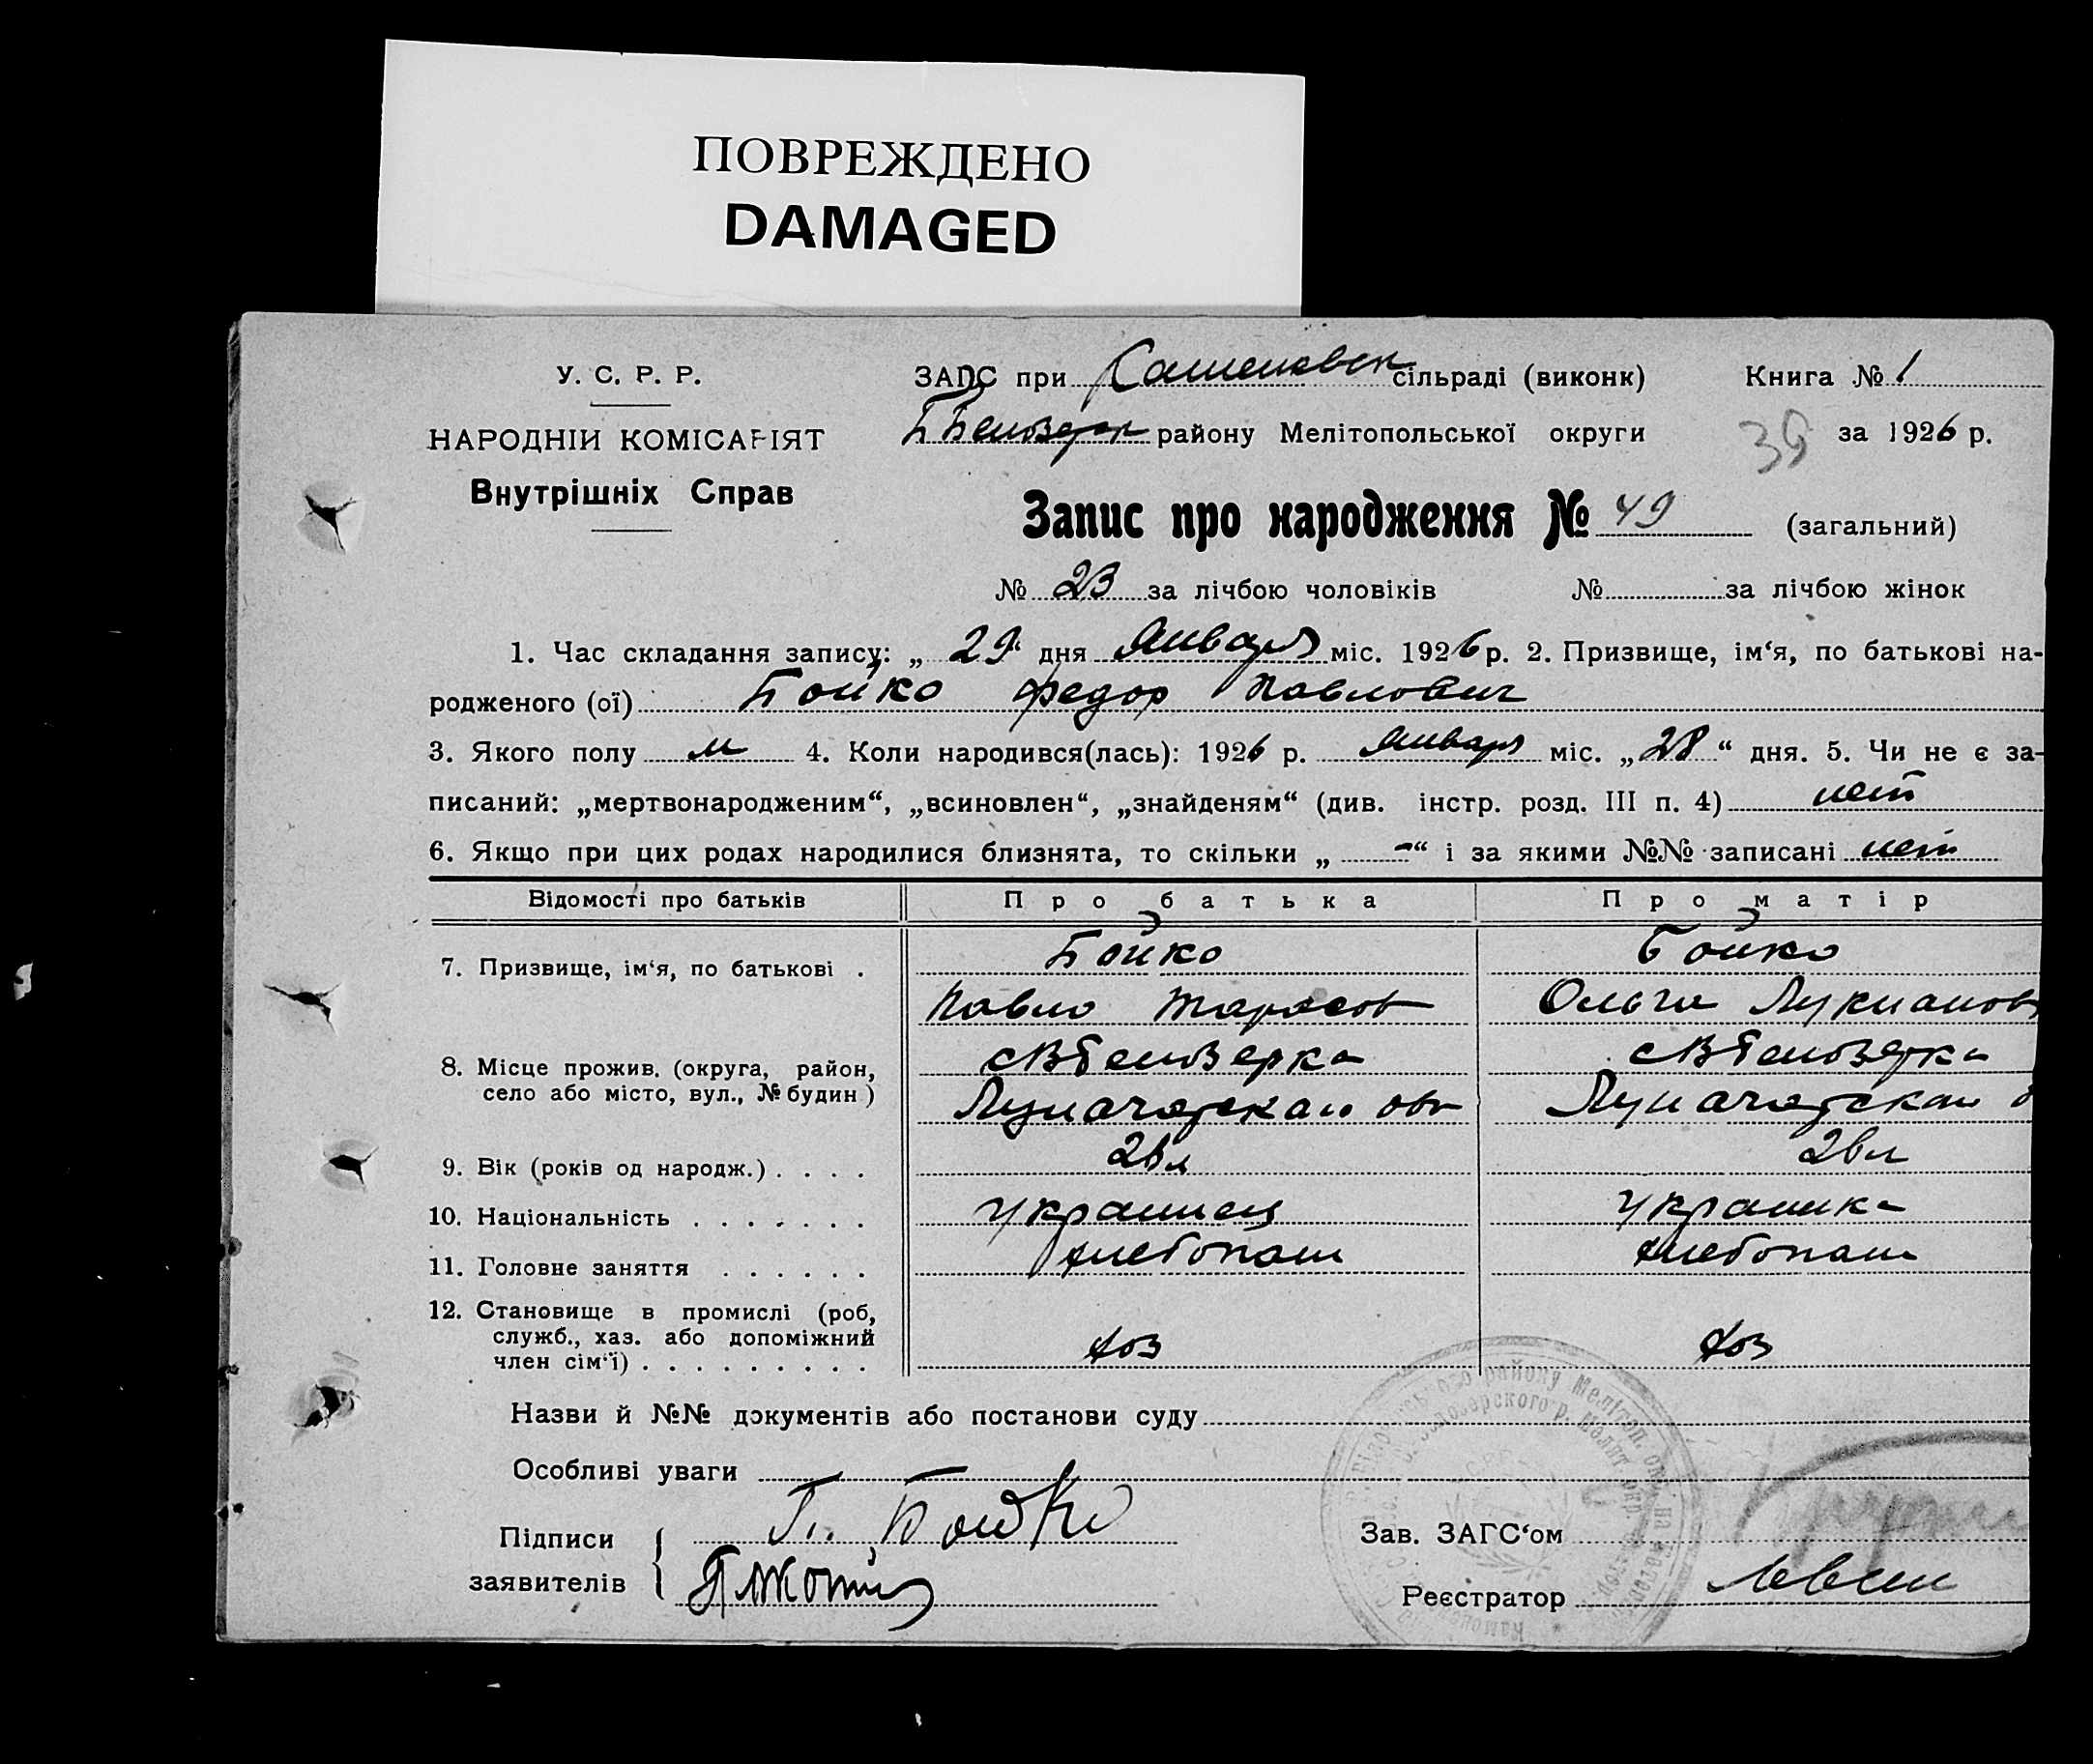 ПОВРЕЖДЕНО
DAMAGED
У. С. Р. Р.
НАРОДНІЙ КОМІСАРІЯТ
Внутрішніх Справ
ЗАГС при Каменовск сільраді (виконк)
Книга № 1
району Мелітопольської округи
39 за 1926 р.
Запис про народження № 49 (загальний)
№ 23 за лічбою чоловіків № за лічбою жінок
1. Час складання запису: „ 29 “ дня Января міс. 1926 р. 2. Призвище, ім‘я, по батькові на-
родженого (ої) Бойко Федор Павлович
3. Якого полу м 4. Коли народився(лась): 1926 р. Января міс. „28“ дня. 5. Чи не є за-
писаний: „мертвонародженим“, „всиновлен“, „знайденям“ (див. інстр. розд. III п. 4) нет
6. Якщо при цих родах народилися близнята, то скільки „ - “ і за якими №№ записані нет
Відомості про батьків Про батька Про матір
7. Призвище, ім‘я, по батькові . Бойко Бойко
Павло Тарасов Ольга Лукианов
8. Місце прожив. (округа, район,
село або місто, вул., № будин) сВБелозерка сВБелозерка
Луначарская Луначарская
9. Вік (років од народж.) . . . .
10. Національність . . . . . . . украинец украинка
11. Головне заняття . . . . . . хлебопаш хлебопаш
12. Становище в промислі (роб,
служб., хаз. або допоміжний
член сім‘ї) . . . . . . . . . хоз хоз
Назви й №№ документів або постанови суду
Особливі уваги
Підписи
заявителів
П. Бойко
Зав. ЗАГС‘ом
Реєстратор